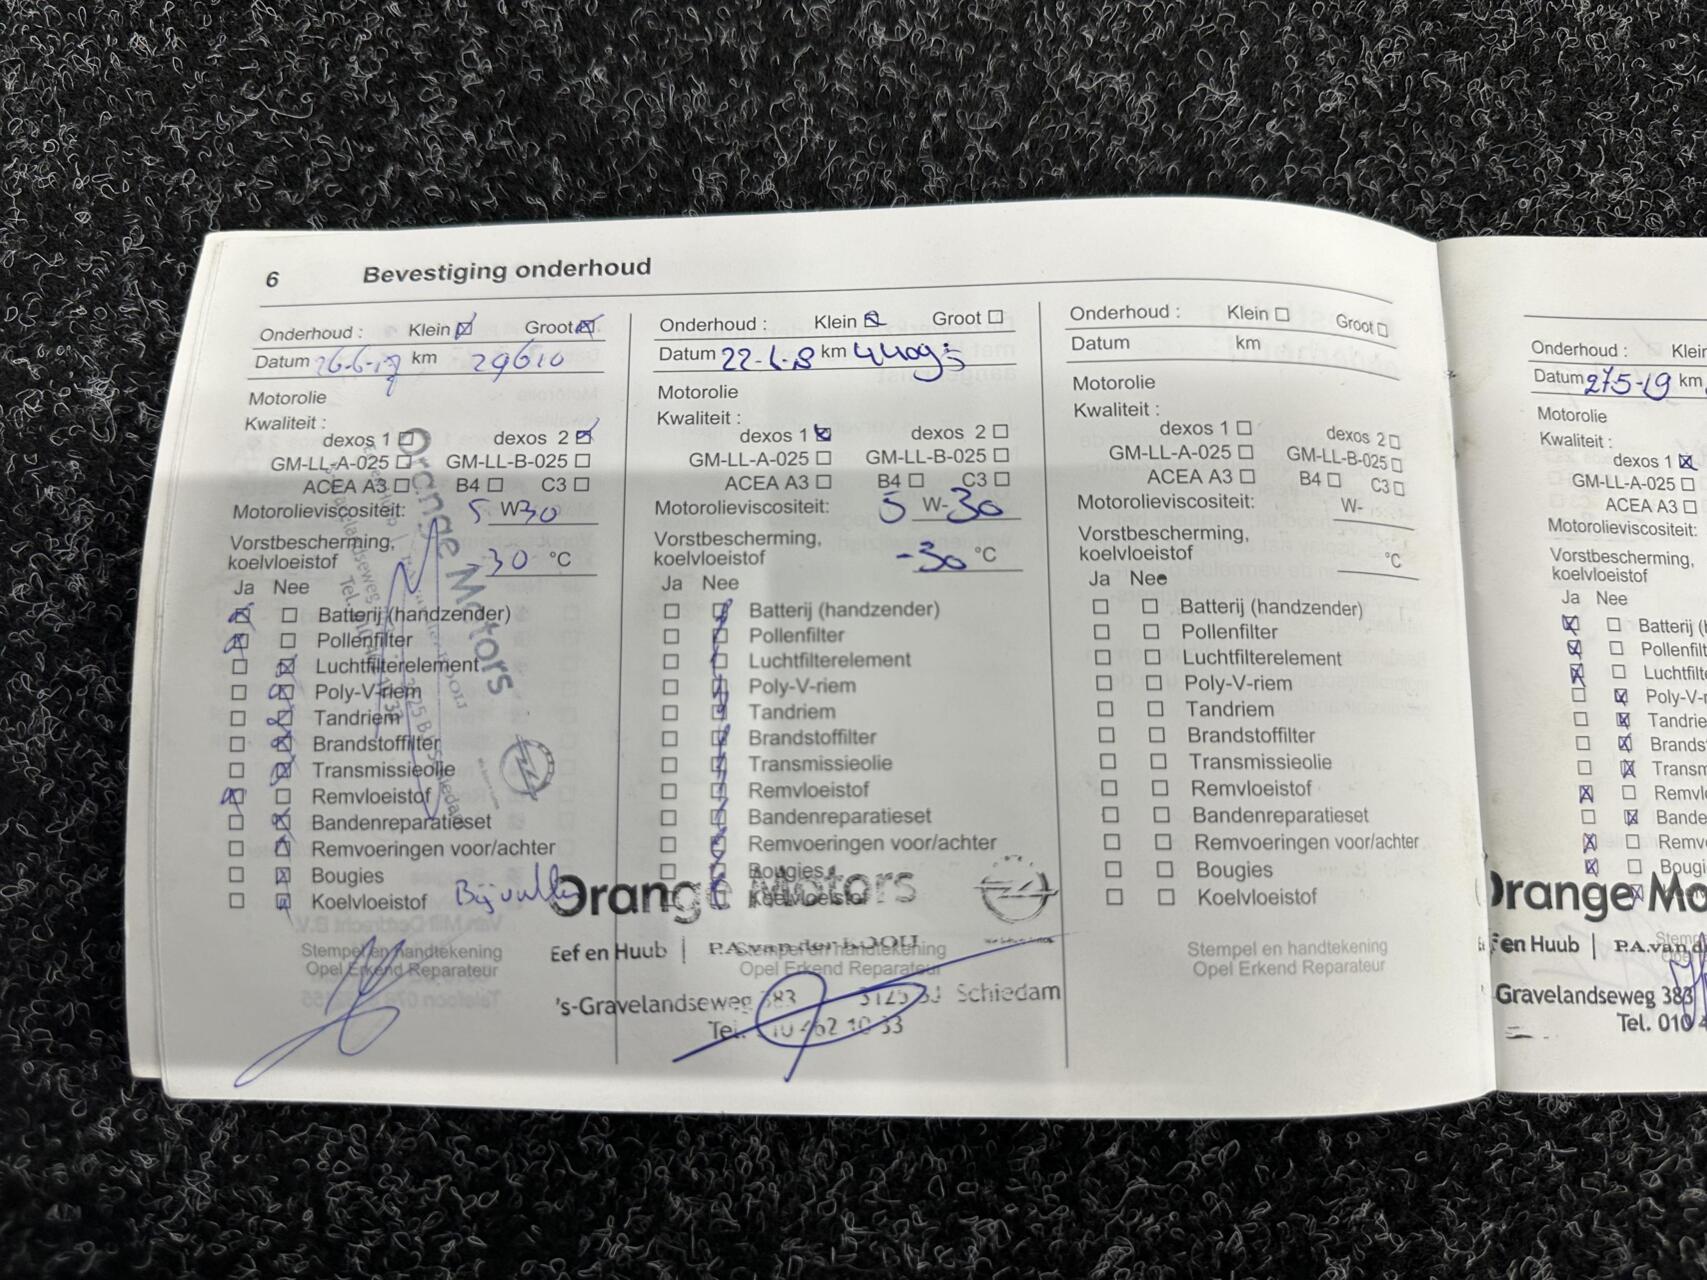 6 Bevestiging onderhoud
Onderhoud : Klein Groot
Datum 26-6-17 km 29610
Motorolie
Kwaliteit :
dexos 1 dexos 2
GM-LL-A-025 GM-LL-B-025
ACEA A3 B4 C3
Motorolieviscositeit: 5 W30
Vorstbescherming,
koelvloeistof -30 °C
Ja Nee
Batterij (handzender)
Pollenfilter
Luchtfilterelement
Poly-V-riem
Tandriem
Brandstoffilter
Transmissieolie
Remvloeistof
Bandenreparatieset
Remvoeringen voor/achter
Bougies
Koelvloeistof
Stempel en handtekening
Opel Erkend Reparateur
Orange Motors
Onderhoud : Klein Groot
Datum 22-6-8 km
Motorolie
Kwaliteit :
dexos 1 dexos 2
GM-LL-A-025 GM-LL-B-025
ACEA A3 B4 C3
Motorolieviscositeit: 5 W-30
Vorstbescherming,
koelvloeistof -30 °C
Ja Nee
Batterij (handzender)
Pollenfilter
Luchtfilterelement
Poly-V-riem
Tandriem
Brandstoffilter
Transmissieolie
Remvloeistof
Bandenreparatieset
Remvoeringen voor/achter
Bougies
Koelvloeistof
Stempel en handtekening
Opel Erkend Reparateur
Orange Motors
Eef en Huub | P.A. van der KOOIJ
's-Gravelandseweg 383 3125 BJ Schiedam
Tel. 010 462 10 33
Onderhoud : Klein Groot
Datum km
Motorolie
Kwaliteit :
dexos 1 dexos 2
GM-LL-A-025 GM-LL-B-025
ACEA A3 B4 C3
Motorolieviscositeit: W-
Vorstbescherming,
koelvloeistof °C
Ja Nee
Batterij (handzender)
Pollenfilter
Luchtfilterelement
Poly-V-riem
Tandriem
Brandstoffilter
Transmissieolie
Remvloeistof
Bandenreparatieset
Remvoeringen voor/achter
Bougies
Koelvloeistof
Stempel en handtekening
Opel Erkend Reparateur
Onderhoud : Klein
Datum 27-5-19 km
Motorolie
Kwaliteit :
dexos 1
GM-LL-A-025
ACEA A3
Motorolieviscositeit:
Vorstbescherming,
koelvloeistof
Ja Nee
Batterij (h
Pollenfilt
Luchtfilte
Poly-V-r
Tandrie
Brands
Transm
Remvl
Bande
Remv
Bougi
Orange Mo
Eef en Huub | P.A. van d
Gravelandseweg 383
Tel. 010